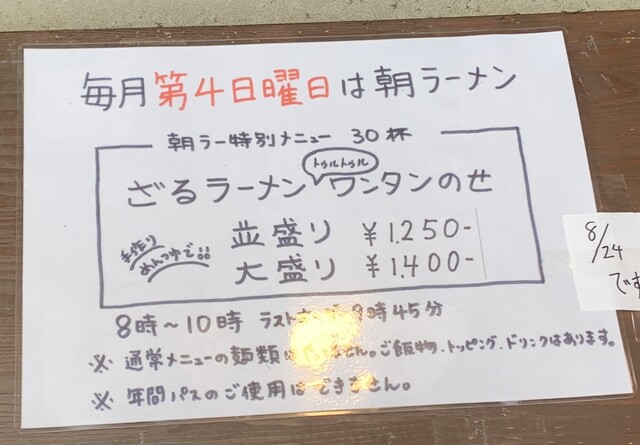 毎月第4日曜日は朝ラーメン
朝ラー特別メニュー 30杯
トゥルトゥル
ざるラーメン ワンタンのせ
手作り
めんつゆで!!
並盛り ¥1.250-
大盛り ¥1.400-
8/24
です
8時~10時 ラスト 9時45分
※ 通常メニューの麺類は ません。ご飯物、トッピング、ドリンクはあります。
※ 年間パスのご使用はできません。